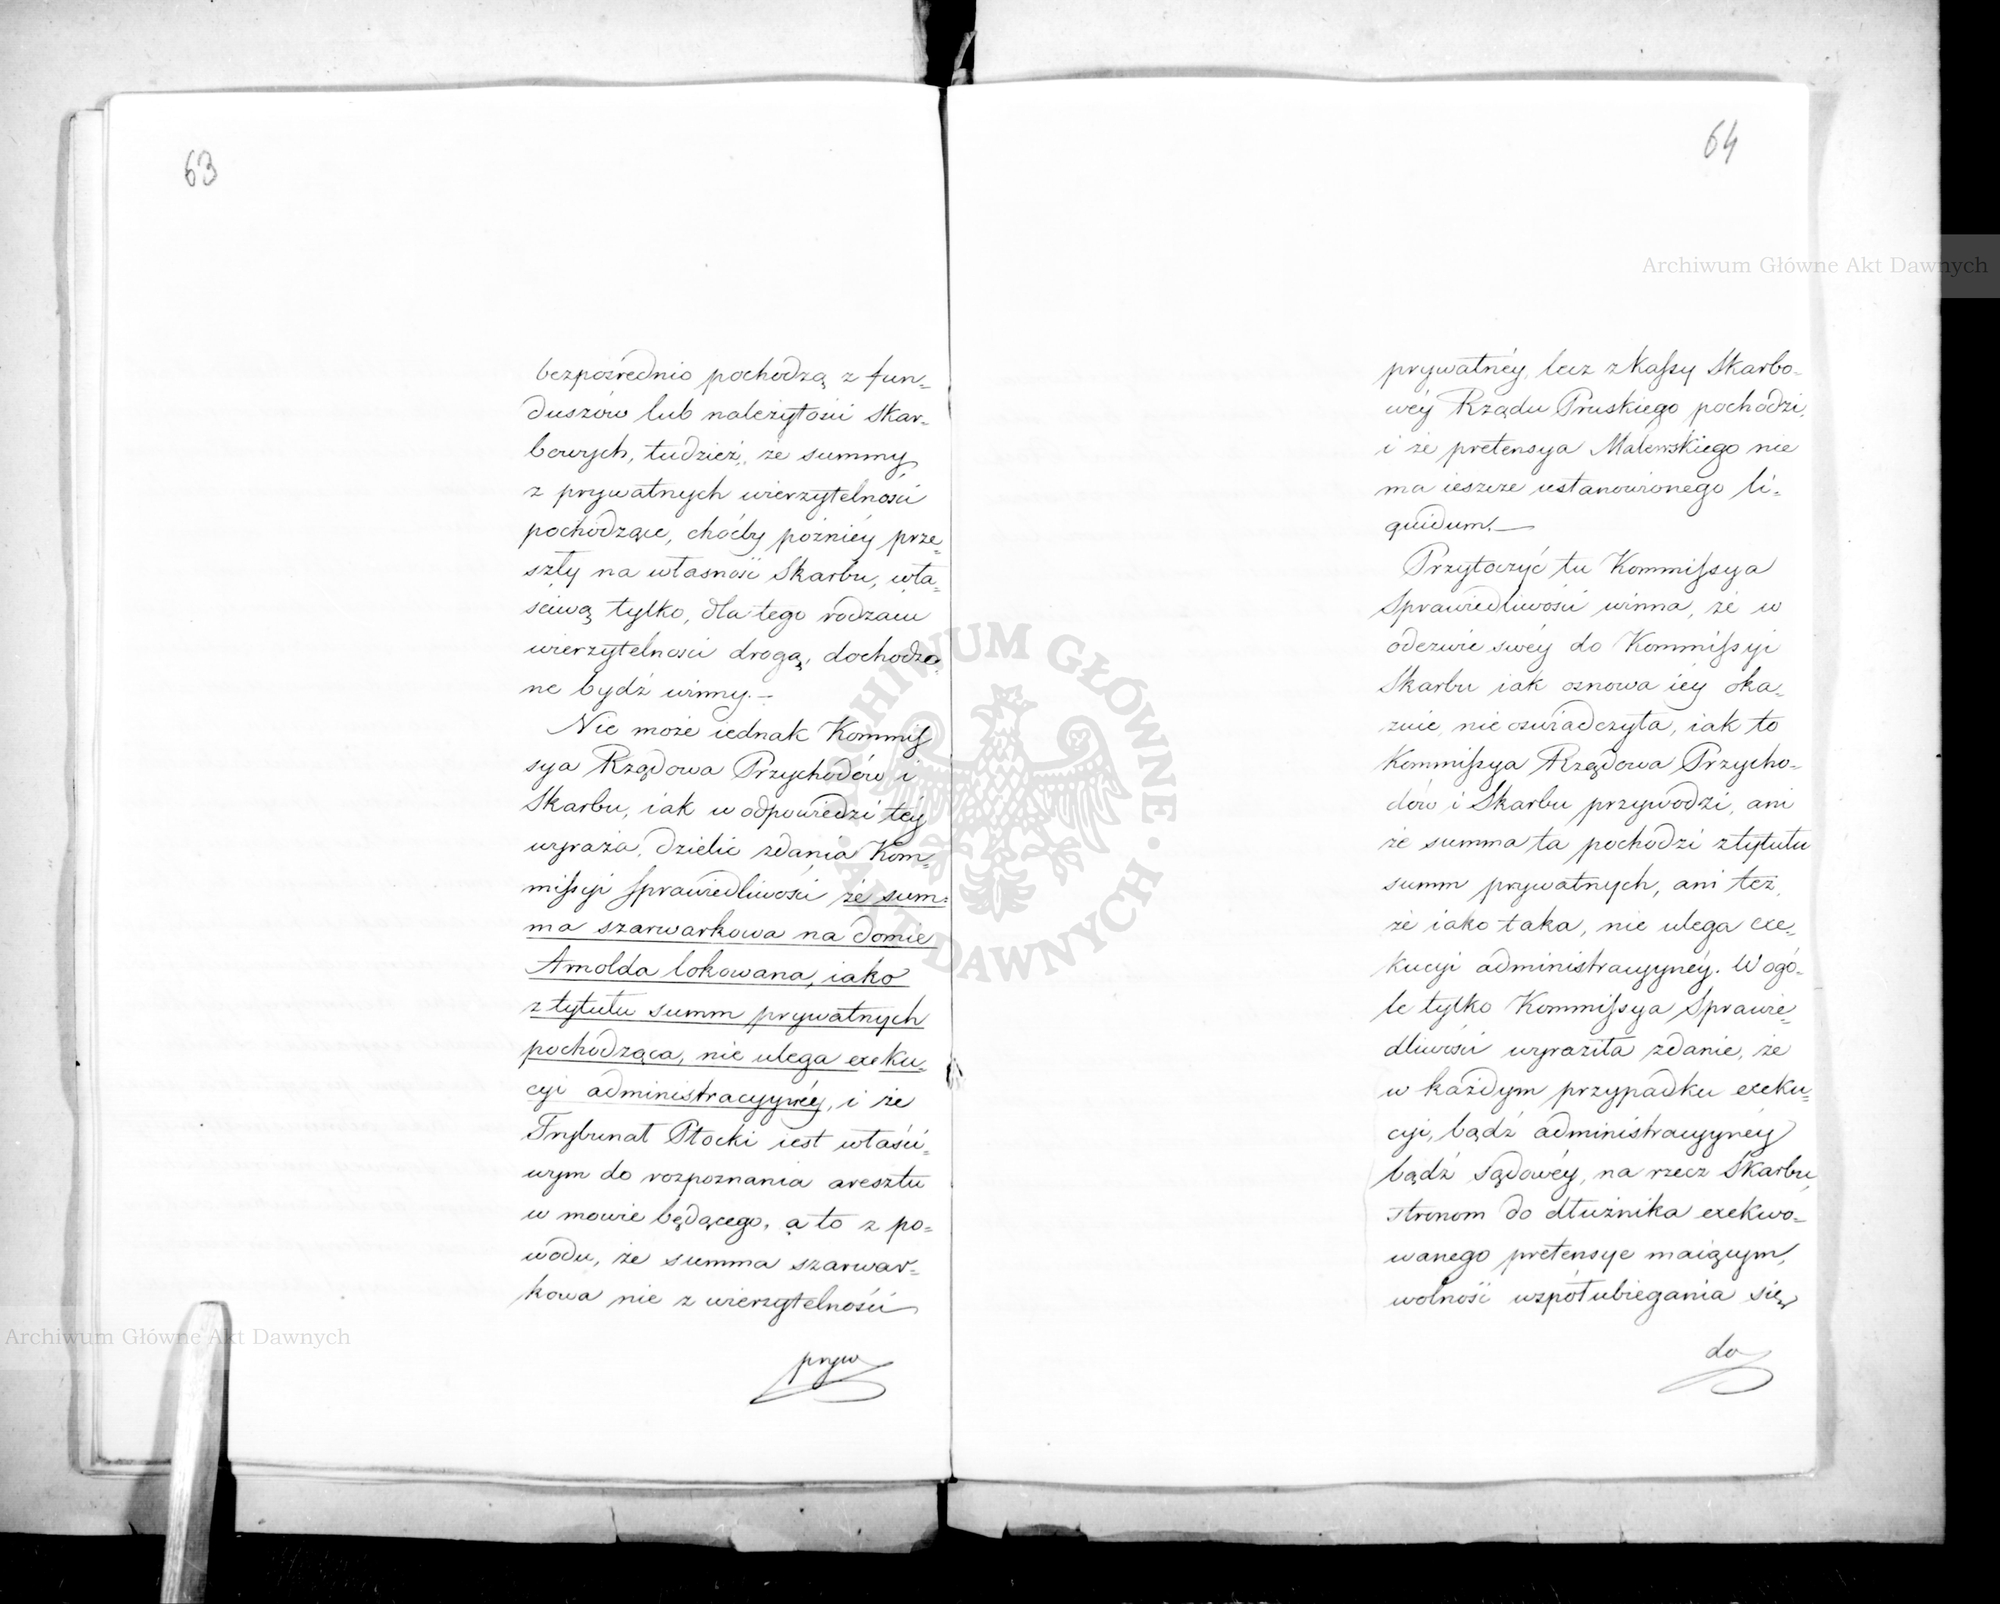 63
bezpośrednio pochodzą z fun-
duszów lub należytości Skar-
bowych, tudzież, że summy
z prywatnych wierzytelności
pochodzące, choćby poźniéy prze-
szły na własność Skarbu, wła-
ściwą tylko, dla tego rodzaiu
wierzytelności drogą, dochodzo-
ne bydź winny.-
Nie może iednak Kommis
sya Rządowa Przychodów i
Skarbu, iak w odpowiedzi téy
wyraża, dzielić zdania Kom-
missyi Sprawiedliwości że sum-
ma szarwarkowa na domie
Arnolda lokowana, iako
z tytułu summ prywatnych
pochodząca, nie ulega exeku-
cyi administracyynéy, i że
Trybunał Płocki iest właści-
wym do rozpoznania aresztu
w mowie będącego, a to z po-
wodu, że summa szarwar-
kowa nie z wierzytelności
pryw
64
prywatnéy, lecz z Kassy Skarbo-
wéy Rządu Pruskiego pochodzi,
i że pretensya Malewskiego nie
ma ieszcze ustanowionego li-
quidum.—
Przytoczyć tu Kommissya
Sprawiedliwości winna, że w
odezwie swéy do Kommissyi
Skarbu iak osnowa iéy oka-
zuie, nie oświadczyła, iak to
Kommissya Rządowa Przycho-
dów i Skarbu przywodzi, ani
że summa ta pochodzi z tytułu
summ prywatnych, ani też,
że iako taka, nie ulega exe-
kucyi administracyynéy. W ogó-
le tylko Kommissya Sprawie-
dliwości wyraziła zdanie, że
w każdym przypadku exeku-
cyi, bądź administracyynéy
bądź Sądowéy, na rzecz Skarbu,
stronom do dłużnika exekwo-
wanego pretensye maiącym,
wolność współubiegania się
do
Archiwum Główne Akt Dawnych
Archiwum Główne Akt Dawnych
ARCHIWUM GŁÓWNE AKT DAWNYCH